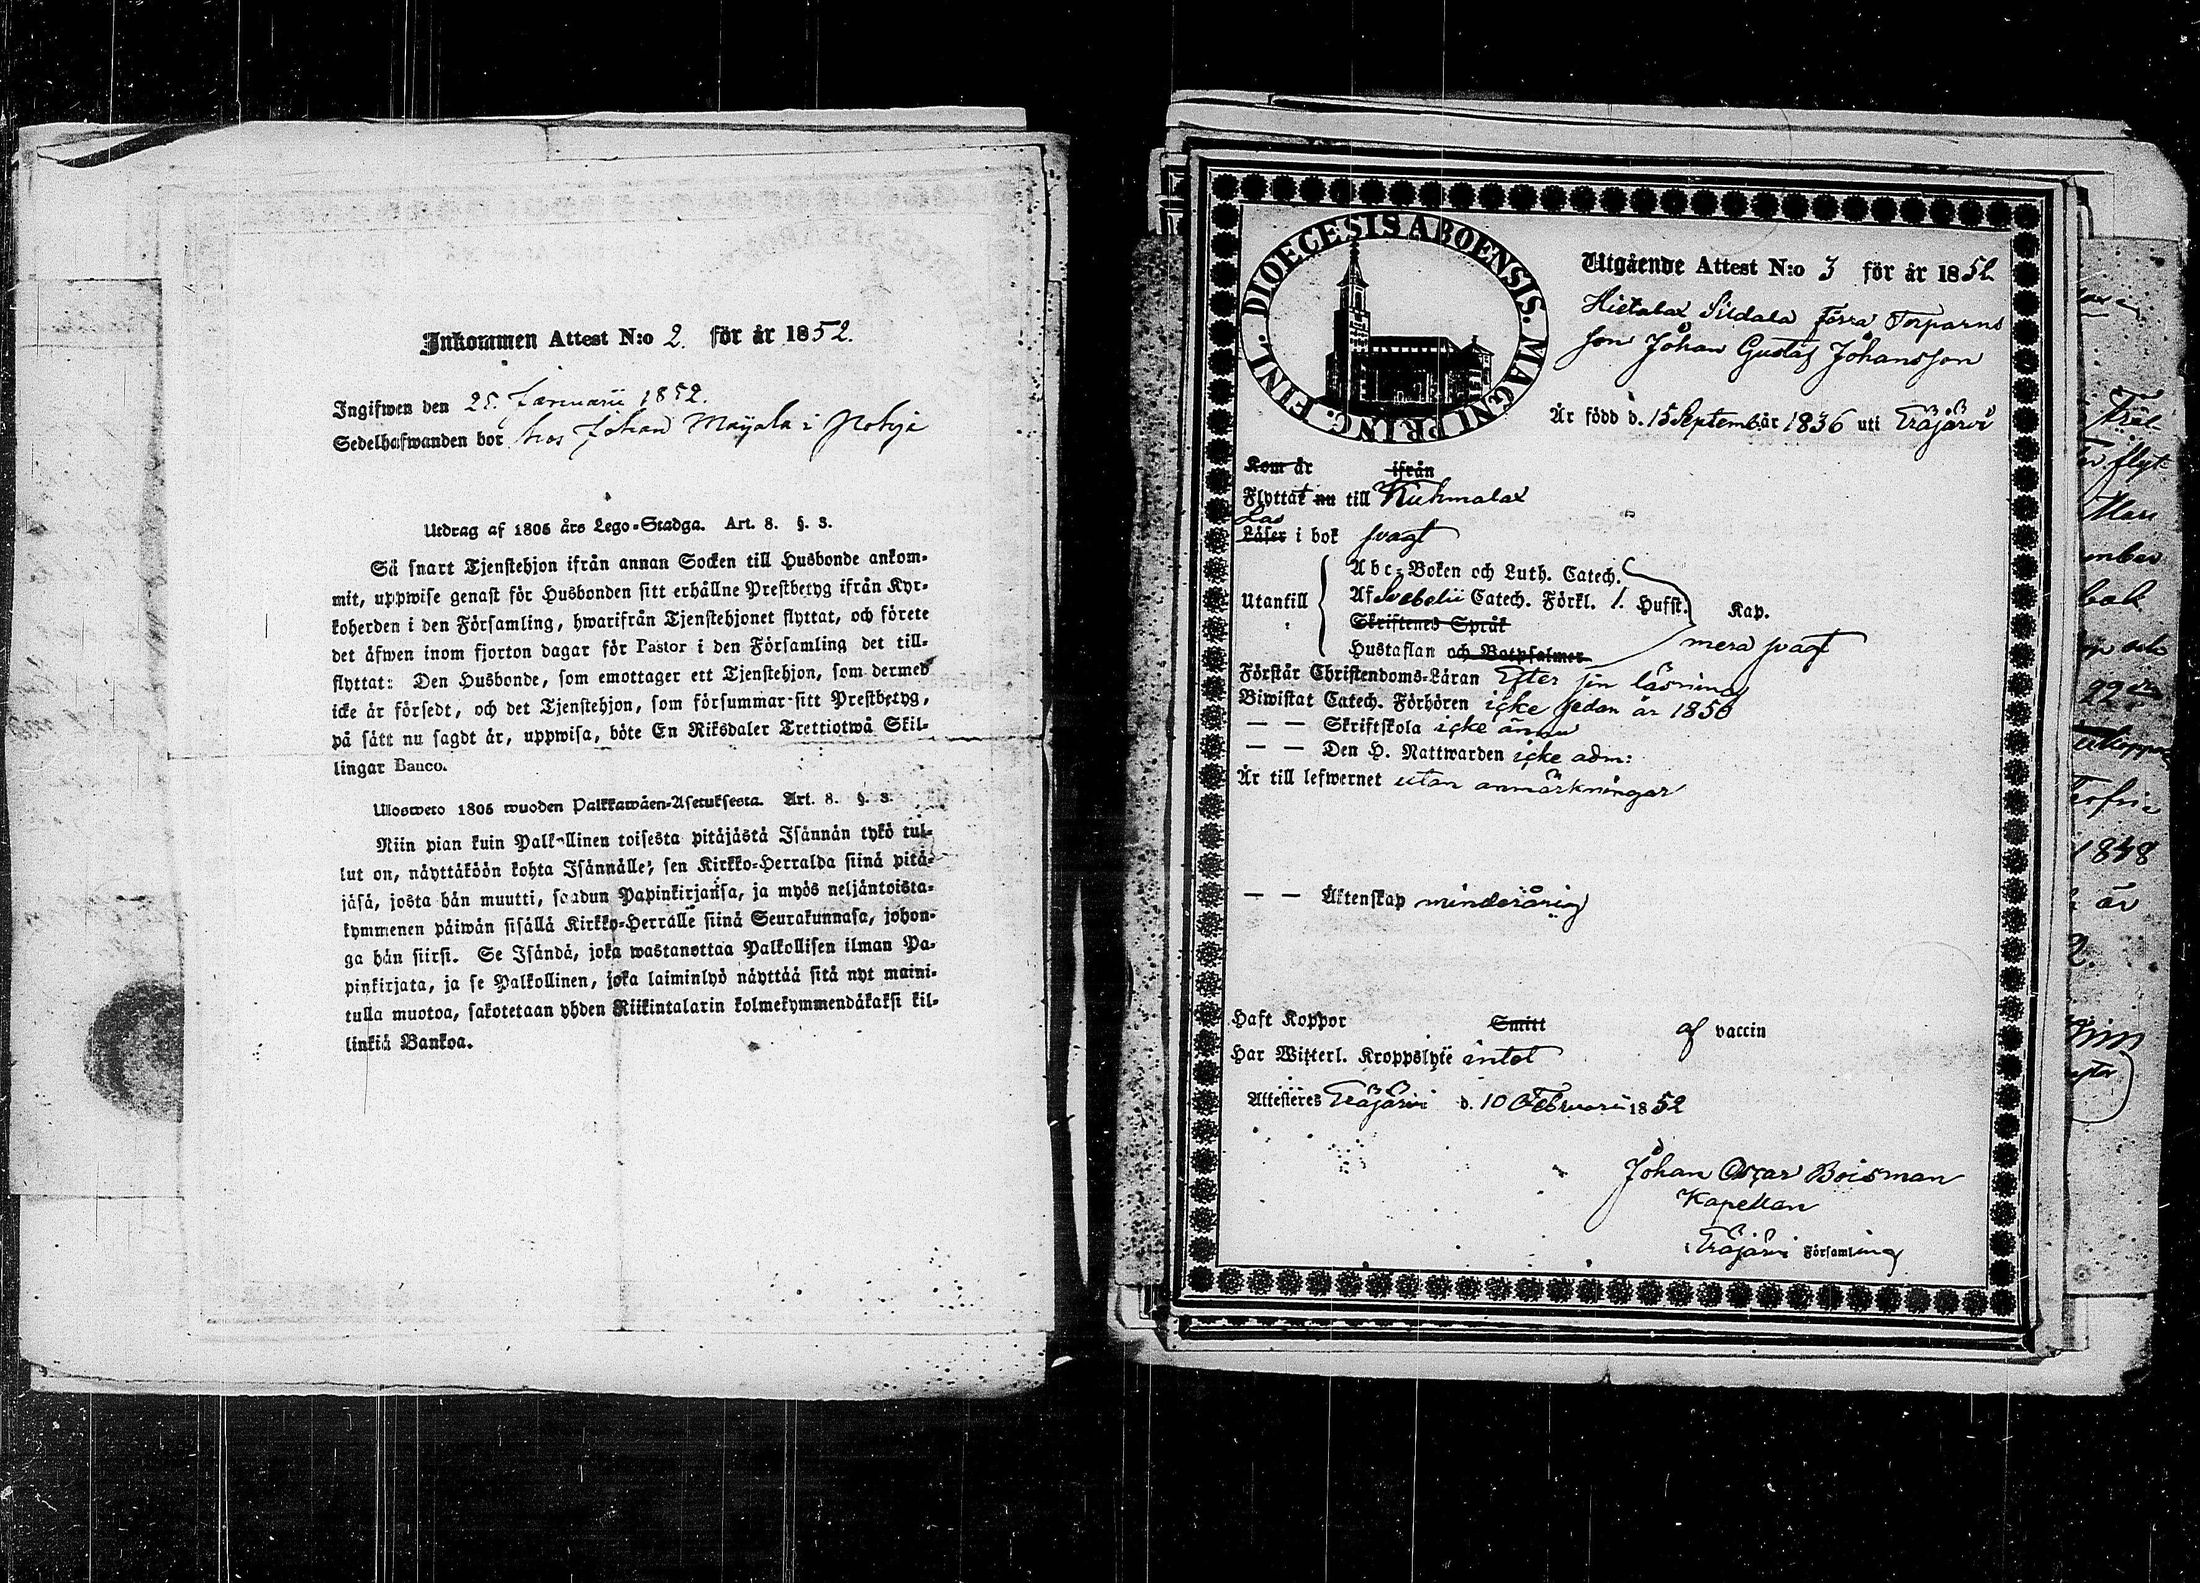 Inkommen Attest N:o 2. för år 1852.
Ingifwen den 25. Januarii 1852.
Sedelhafwanden bor hos Johan Mäyälä i Pohja
Utdrag af 1805 års Lego-Stadga. Art. 8. §. 3.
Så snart Tjenstehjon ifrån annan Socken till Husbonde ankom-
mit, uppwise genast för Husbonden sitt erhållne Prestbetyg ifrån Kyr-
koherden i den Församling, hwarifrån Tjenstehjonet flyttat, och förete
det äfwen inom fjorton dagar för Pastor i den Församling det till-
flyttat: Den Husbonde, som emottager ett Tjenstehjon, som dermed
icke är försedt, och det Tjenstehjon, som försummar sitt Prestbetyg,
på sätt nu sagdt är, uppwisa, böte En Riksdaler Trettiotwå Skil-
lingar Banco.
Ulosweto 1805 wuoden Palkkawäen-Asetuksesta. Art. 8. §. 3.
Niin pian kuin Palkollinen toisesta pitäjästä Isännän tykö tul-
lut on, näyttäköön kohta Isännälle, sen Kirkko-Herralda siinä pitä-
jäsä, josta hän muutti, saadun Papinkirjansa, ja myös neljäntoista-
kymmenen päiwän sisällä Kirkko-Herralle siinä Seurakunnasa, johon-
ga hän siirsi. Se Isändä, joka wastanottaa Palkollisen ilman Pa-
pinkirjata, ja se Palkollinen, joka laiminlyö näyttää sitä nyt maini-
tulla muotoa, sakotetaan yhden Riikintalarin kolmekymmendäkaksi kil-
linkiä Bankoa.
DIOECESIS ABOENSIS. MAGNI PRINC. FINL.
Utgående Attest N:o 3 för år 1852
Sildala Torparns
son Johan Gustaf Johansson
Är född d. 15 Septemb. år 1836 uti Eräjärvi
Kom år ifrån
Flyttat nu till Kuhmalax
Las
Läser i bok svagt
Utantill
Abc-Boken och Luth. Catech.
Af Svebelii Catech. Förkl. 1. Hufst. Kap.
Skriftenes Språk
Hustaflan och Botpsalmer
mera svagt
Förstår Christendoms-Läran Efter sin läsning
Biwistat Catech. Förhören icke sedan år 1850
— — Skriftskola icke ännu
— — Den H. Nattwarden icke adm:
Är till lefwernet utan anmärkningar
— — Äktenskap minderårig
Haft Koppor Smitt af vaccin
Har Witterl. Kroppslyte intet
Attesteres Eräjärvi d. 10 Februari 1852
Johan Oscar Boisman
Kapellan
i Eräjärvi Församling